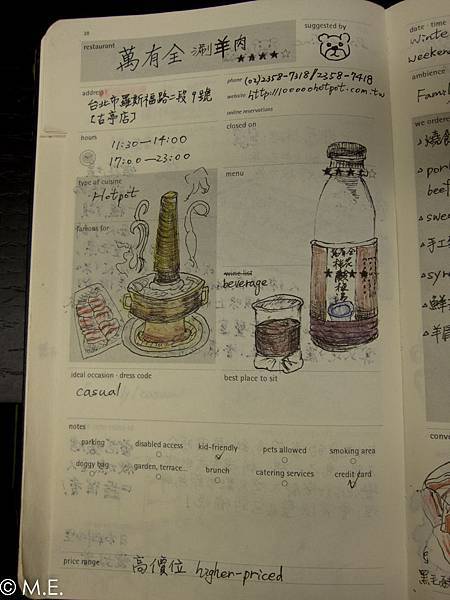 38
restaurant
萬有全 涮羊肉
★★★★☆
suggested by
address
台北市羅斯福路二段9號
[古亭店]
phone (02)2358-7318/2358-7418
website http://10000hotpot.com.tw
online reservations
hours
11:30—14:00
17:00—23:00
closed on
type of cuisine
Hotpot
menu
famous for
wine list
beverage
萬有全
酸梅湯
ideal occasion · dress code
casual
best place to sit
notes
parking
disabled access
kid-friendly
pets allowed
smoking area
doggy bag
garden, terrace...
brunch
catering services
credit card
price range
高價位 higher-priced
date · time
winte
weekend
ambience
Fami
we ordered
pork
beef
swe
手工
syr
鮮
羊肩
conv
黑毛
© M.E.